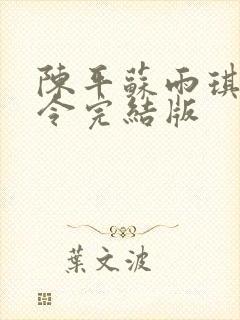 陳平蘇雨琪
令完結版
葉文波